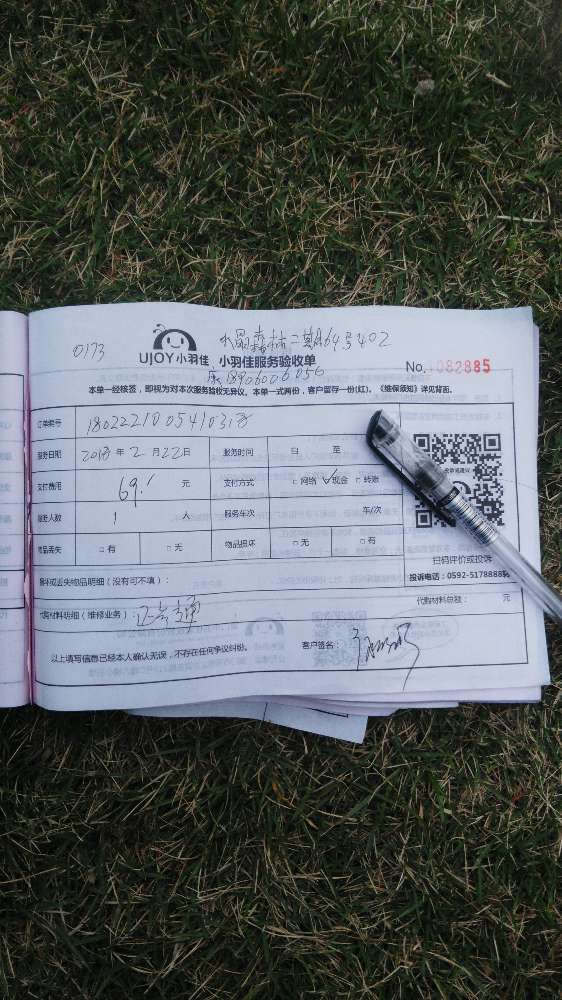 0173
水晶森林二期64号402
UJOY小羽佳 小羽佳服务验收单
No. 1082885
康 18906006056
本单一经核签，即视为对本次服务验收无异议。本单一式两份，客户留存一份(红)。《维保须知》详见背面。
订单编号
服务日期 2018年 2月 22日 服务时间 自 至
支付费用 69.1 元 支付方式 □网络 ☑现金 □转账
服务人数 1 人 服务车次 车/次
物品丢失 □有 □无 物品损坏 □无 □有
扫码评价或投诉
投诉电话：0592-5178888转
损坏或丢失物品明细（没有可不填）：
代购材料总额： 元
代购材料明细（维修业务）：
以上填写信息已经本人确认无误，不存在任何争议纠纷。 客户签名：